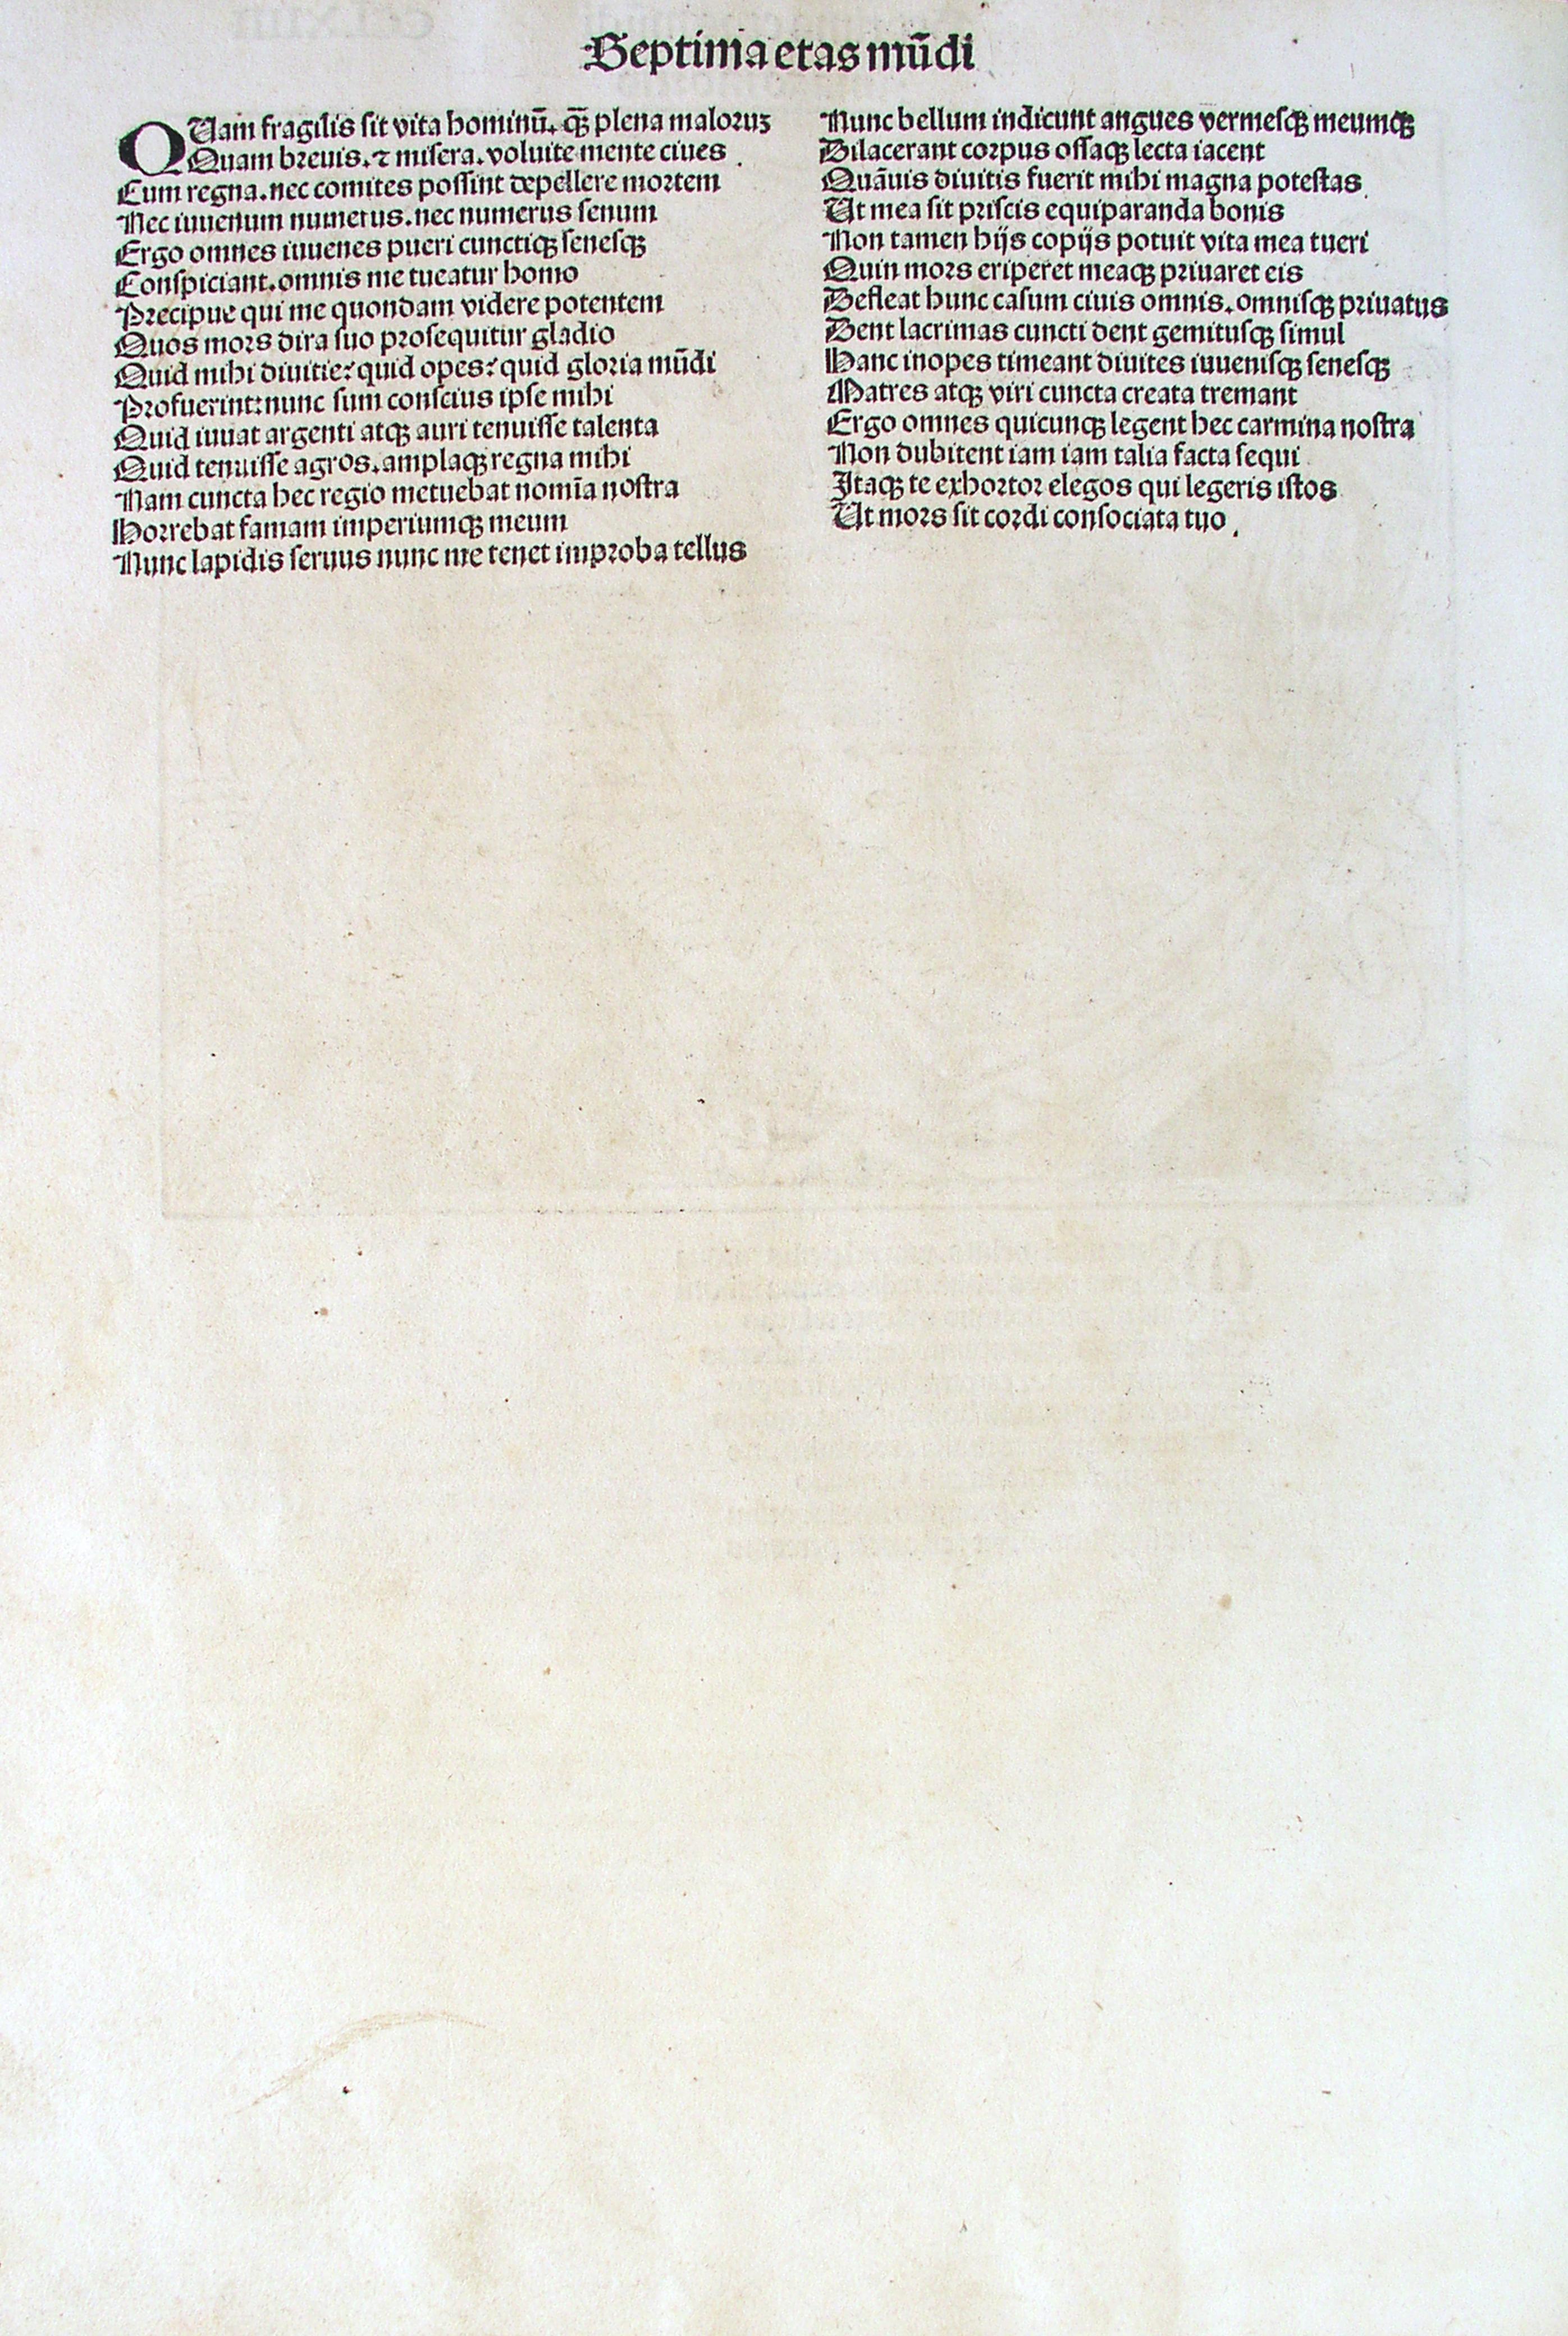 Septima etas mūdi
QUam fragilis sit vita hominū. qꝫ̄ plena maloruꝫ
Quam breuis. ⁊ misera. voluite mente ciues.
Cum regna. nec comites possint depellere mortem
Nec iuuenum numerus. nec numerus senum
Ergo omnes iuuenes pueri cunctiqꝫ senesqꝫ
Conspiciant. omnis me tueatur homo
Precipue qui me quondam videre potentem
Quos mors dira suo prosequitur gladio
Quid mihi diuitie? quid opes? quid gloria mūdi
Profuerint: nunc sum conscius ipse mihi
Quid iuuat argenti atqꝫ auri tenuisse talenta
Quid tenuisse agros. amplaqꝫ regna mihi
Nam cuncta hec regio metuebat nomīa nostra
Horrebat famam imperiumqꝫ meum
Nunc lapidis seruus nunc me tenet improba tellus
Nunc bellum indicunt angues vermesqꝫ meumqꝫ
Dilacerant corpus ossaqꝫ lecta iacent
Quāuis diuitis fuerit mihi magna potestas
Ut mea sit priscis equiparanda bonis
Non tamen hijs copijs potuit vita mea tueri
Quin mors eriperet meaqꝫ priuaret eis
Defleat hunc casum ciuis omnis. omnisqꝫ priuatus
Dent lacrimas cuncti dent gemitusqꝫ simul
Hanc inopes timeant diuites iuuenisqꝫ senesqꝫ
Matres atqꝫ viri cuncta creata tremant
Ergo omnes quicunqꝫ legent hec carmina nostra
Non dubitent iam iam talia facta sequi
Itaqꝫ te exhortor elegos qui legeris istos
Ut mors sit cordi consociata tuo.